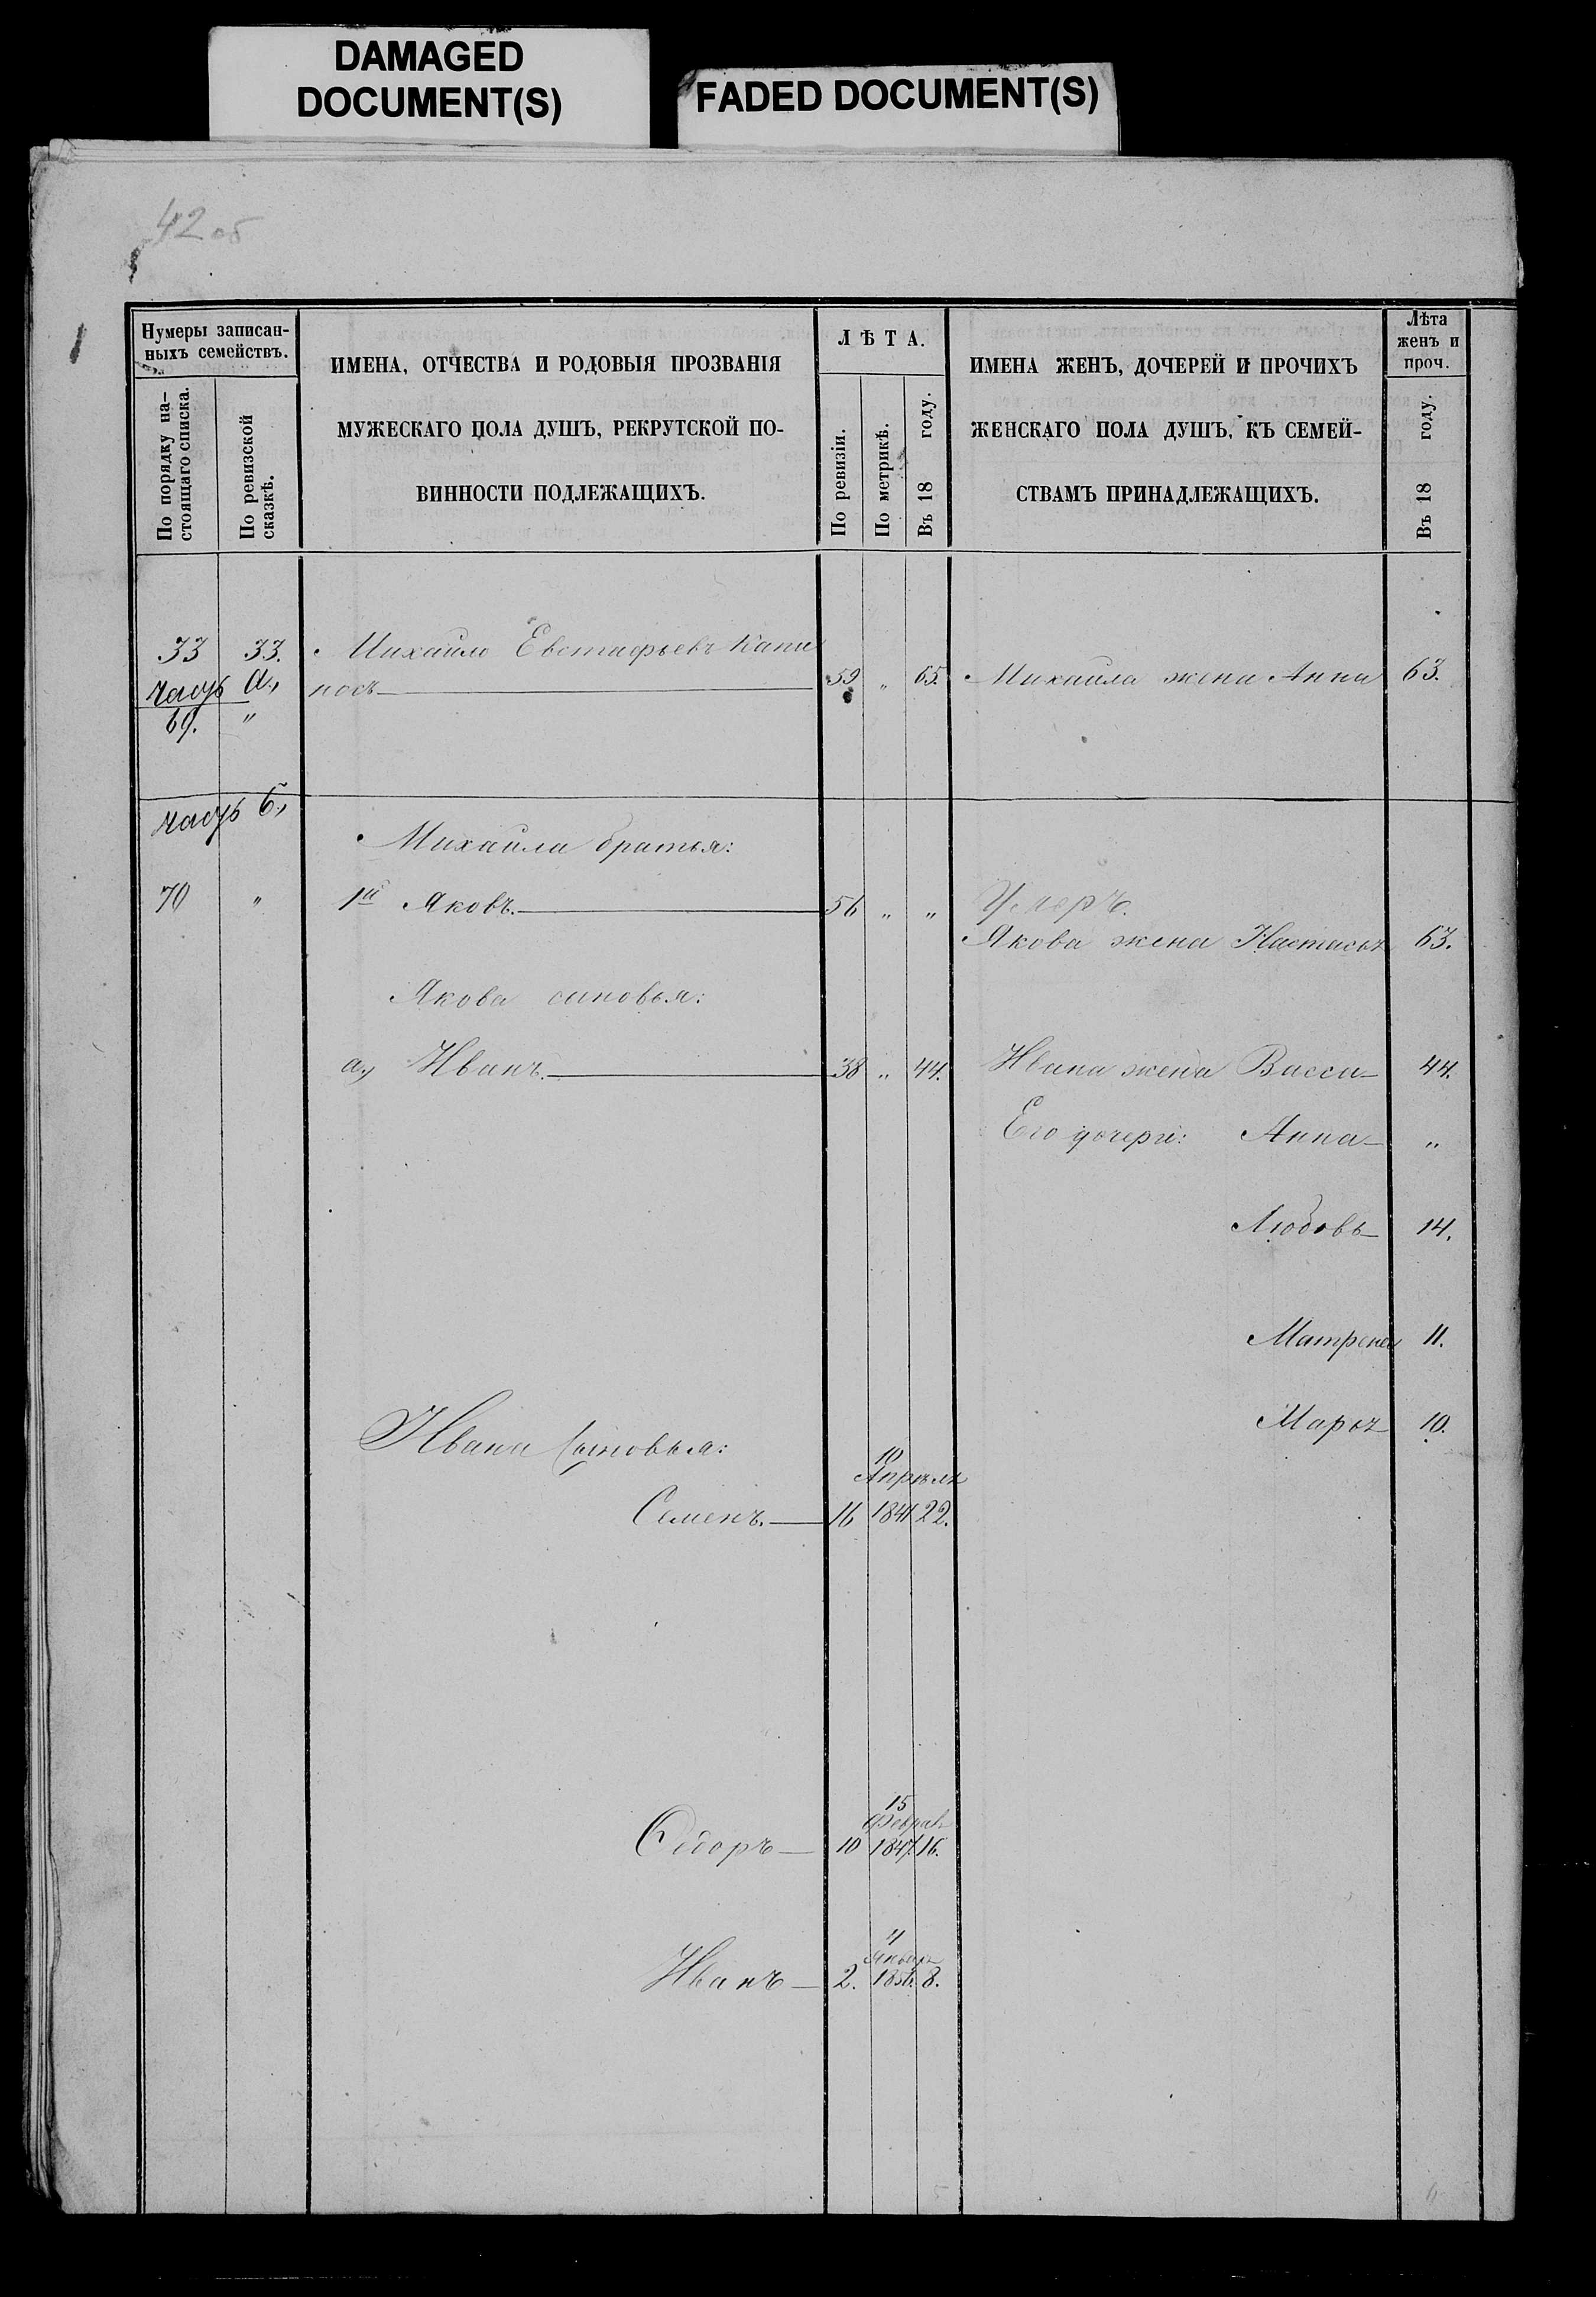 DAMAGED
DOCUMENT(S)
FADED DOCUMENT(S)
42 об
Нумеры записан-
ныхъ семействъ.
По порядку на-
стоящаго списка.
По ревизской
сказкѣ.
ИМЕНА, ОТЧЕСТВА И РОДОВЫЯ ПРОЗВАНІЯ
МУЖЕСКАГО ПОЛА ДУШЪ, РЕКРУТСКОЙ ПО-
ВИННОСТИ ПОДЛЕЖАЩИХЪ.
ЛѢТА.
По ревизіи.
По метрикѣ.
Въ 18 году.
ИМЕНА ЖЕНЪ, ДОЧЕРЕЙ И ПРОЧИХЪ
ЖЕНСКАГО ПОЛА ДУШЪ, КЪ СЕМЕЙ-
СТВАМЪ ПРИНАДЛЕЖАЩИХЪ.
Лѣта
женъ и
проч.
Въ 18 году.
33 33. Михайло Евстафьевъ Капи
часть а., носъ 59 „ 65. Михайла жена Анна 63.
69. „
часть б.,
Михайла братья:
70 „ 1й Яковъ. 56 „ „ Умеръ.
Якова жена Настасья 63.
Якова сыновья:
а., Иванъ. 38 „ 44. Ивана жена Васса 44.
Его дочери: Анна „
Любовь 14.
Матрена 11.
Марья 10.
Ивана Сыновья:
10
Апрѣля
Семенъ. 16 1841 22.
15
Февраля
Ѳедоръ 10 1847. 16.
Января
Иванъ 2. 1856. 8.